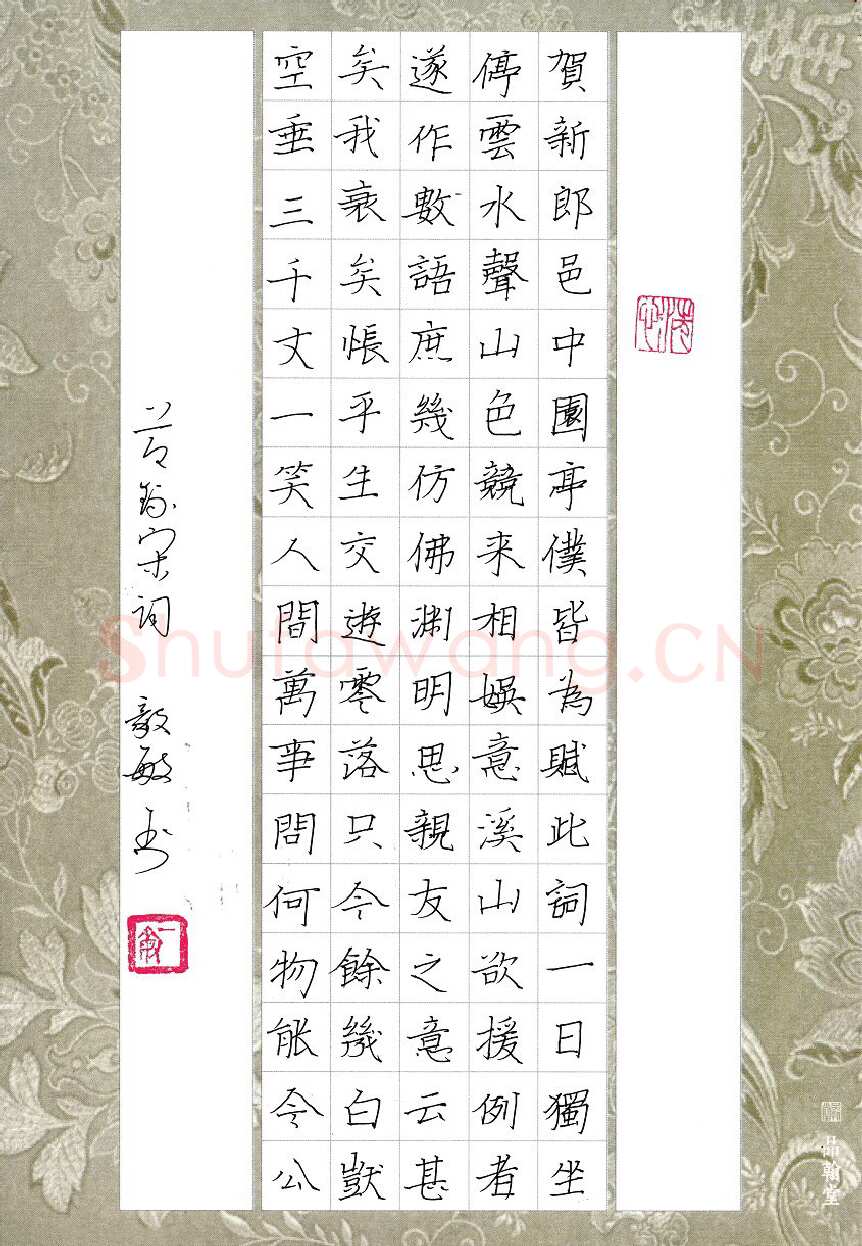 賀新郎邑中園亭僕皆為賦此詞一日獨坐
停雲水聲山色競来相娛意溪山欲援例者
遂作數語庶幾仿佛渊明思親友之意云甚
矣我衰矣悵平生交遊零落只今餘幾白獸
空垂三千丈一笑人間萬事問何物能令公
節錄宋詞 毅敏書
品翰堂
Shufawang.CN